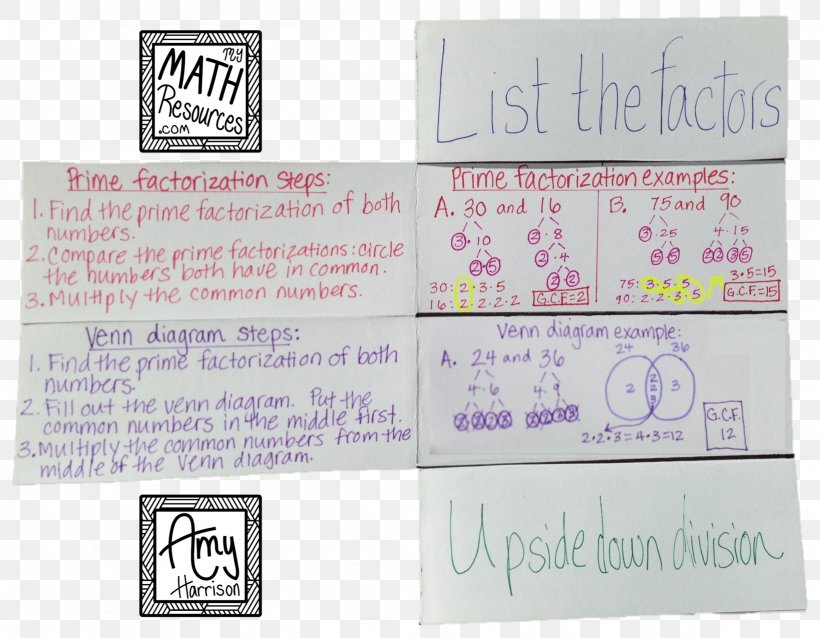 My
MATH
Resources
.com
List the factors
Prime factorization steps:
1. Find the prime factorization of both
numbers.
2. Compare the prime factorizations: circle
the numbers both have in common.
3. Multiply the common numbers.
Prime factorization examples:
A. 30 and 16
3 · 10
2 · 5
2 · 8
2 · 4
2 · 2
30: 2 · 3 · 5
16: 2 · 2 · 2 · 2
G.C.F. = 2
B. 75 and 90
3 · 25
5 · 5
4 · 15
2 2 3 5
75: 3 · 5 · 5
90: 2 · 2 · 3 · 5
3 · 5 = 15
G.C.F. = 15
Venn diagram steps:
1. Find the prime factorization of both
numbers.
2. Fill out the venn diagram. Put the
common numbers in the middle first.
3. Multiply the common numbers from the
middle of the Venn diagram.
Venn diagram example:
A. 24 and 36
4 · 6
2 2 2 3
4 · 9
2 2 3 3
24 36
2
2
2
3
3
2 · 2 · 3 = 4 · 3 = 12
G.C.F.
12
Amy
Harrison
Upside down division